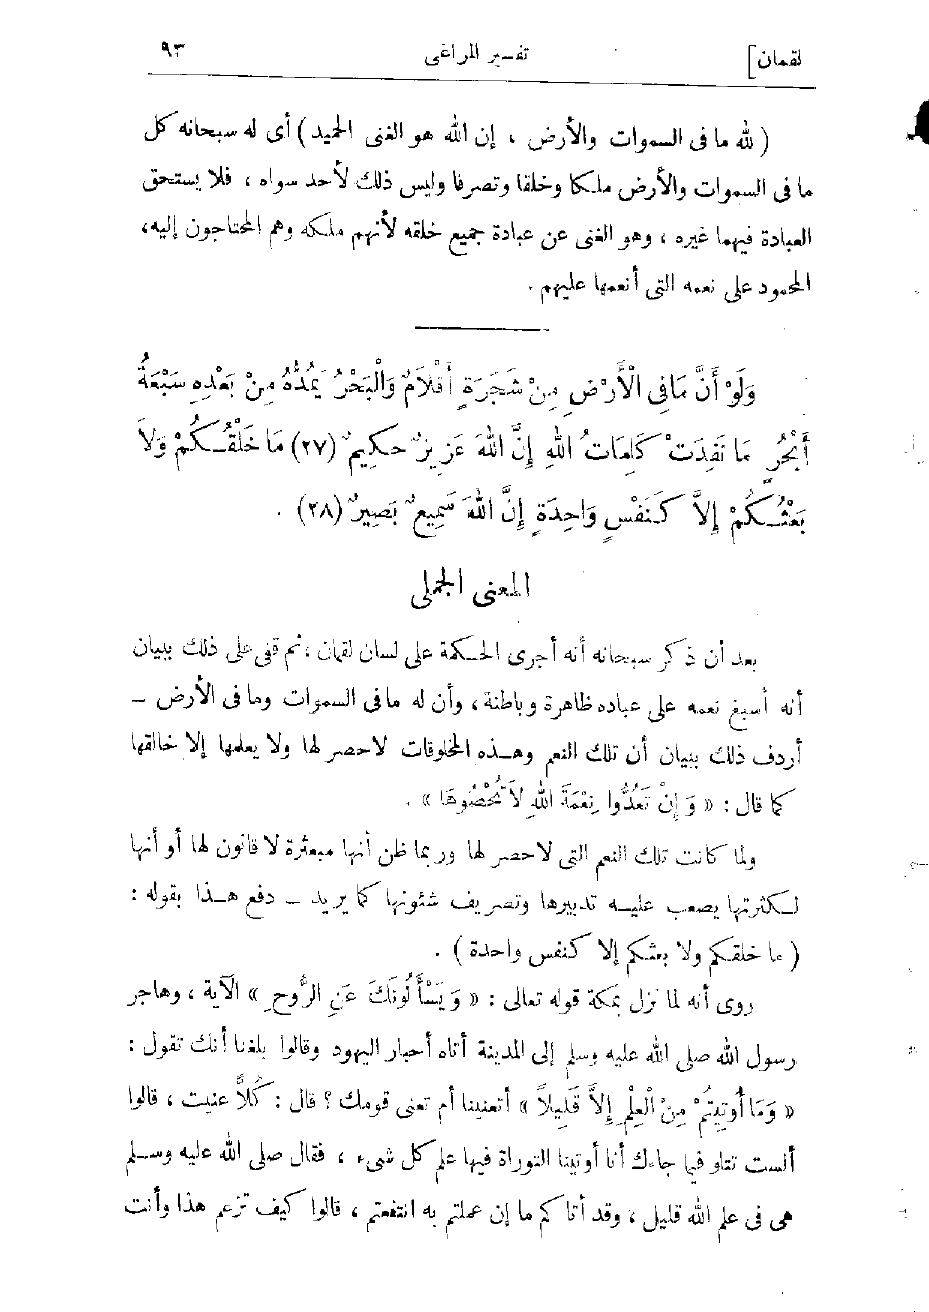 لقمان]
تفسير المراغى
٩٣
( لله ما فى السموات والأرض ، إن الله هو الغنى الحميد ) أى له سبحانه كل
ما فى السموات والأرض ملكا وخلقا وتصرفا وليس ذلك لأحد سواه ، فلا يستحق
العبادة فيهما غيره ، وهو الغنى عن عبادة جميع خلقه لأنهم ملكه وهم المحتاجون إليه،
المحمود على نعمه التى أنعمها عليهم .
وَلَوْ أَنَّ مَا فِى الْأَرْضِ مِنْ شَجَرَةٍ أَقْلَامٌ وَالْبَحْرُ يَمُدُّهُ مِنْ بَعْدِهِ سَبْعَةُ
أَبْحُرٍ مَا نَفِدَتْ كَلِمَاتُ اللهِ إِنَّ اللهَ عَزِيزٌ حَكِيمٌ (٢٧) مَا خَلْقُكُمْ وَلَا
بَعْثُكُمْ إِلاَّ كَنَفْسٍ وَاحِدَةٍ إِنَّ اللهَ سَمِيعٌ بَصِيرٌ (٢٨) .
المعنى الجملى
بعد أن ذكر سبحانه أنه أجرى الحكمة على لسان لقمان ، ثم قفى على ذلك ببيان
أنه أسبغ نعمه على عباده ظاهرة وباطنة ، وأن له ما فى السموات وما فى الأرض –
أردف ذلك ببيان أن تلك النعم وهذه المخلوقات لا حصر لها ولا يعلمها إلا خالقها
كما قال : « وَإِنْ تَعُدُّوا نِعْمَةَ اللهِ لاَ تُحْصُوهَا » .
ولما كانت تلك النعم التى لا حصر لها وربما ظن أنها مبعثرة لا قانون لها أو أنها
لكثرتها يصعب عليه تدبيرها وتصريف شئونها كما يريد – دفع هذا بقوله :
( ما خلقكم ولا بعثكم إلا كنفس واحدة ) .
روى أنه لما نزل بمكة قوله تعالى : « وَيَسْأَلُونَكَ عَنِ الرُّوحِ » الآية ، وهاجر
رسول الله صلى الله عليه وسلم إلى المدينة أتاه أحبار اليهود وقالوا بلغنا أنك تقول :
« وَمَا أُوتِيتُمْ مِنَ الْعِلْمِ إِلاَّ قَلِيلاً » أتعنينا أم تعنى قومك ؟ قال : كُلاًّ عنيت ، قالوا
ألست تتلو فيما جاءك أنا أوتينا التوراة فيها علم كل شىء ، فقال صلى الله عليه وسلم
هى فى علم الله قليل ، وقد أتاكم ما إن عملتم به انتفعتم ، قالوا كيف تزعم هذا وأنت